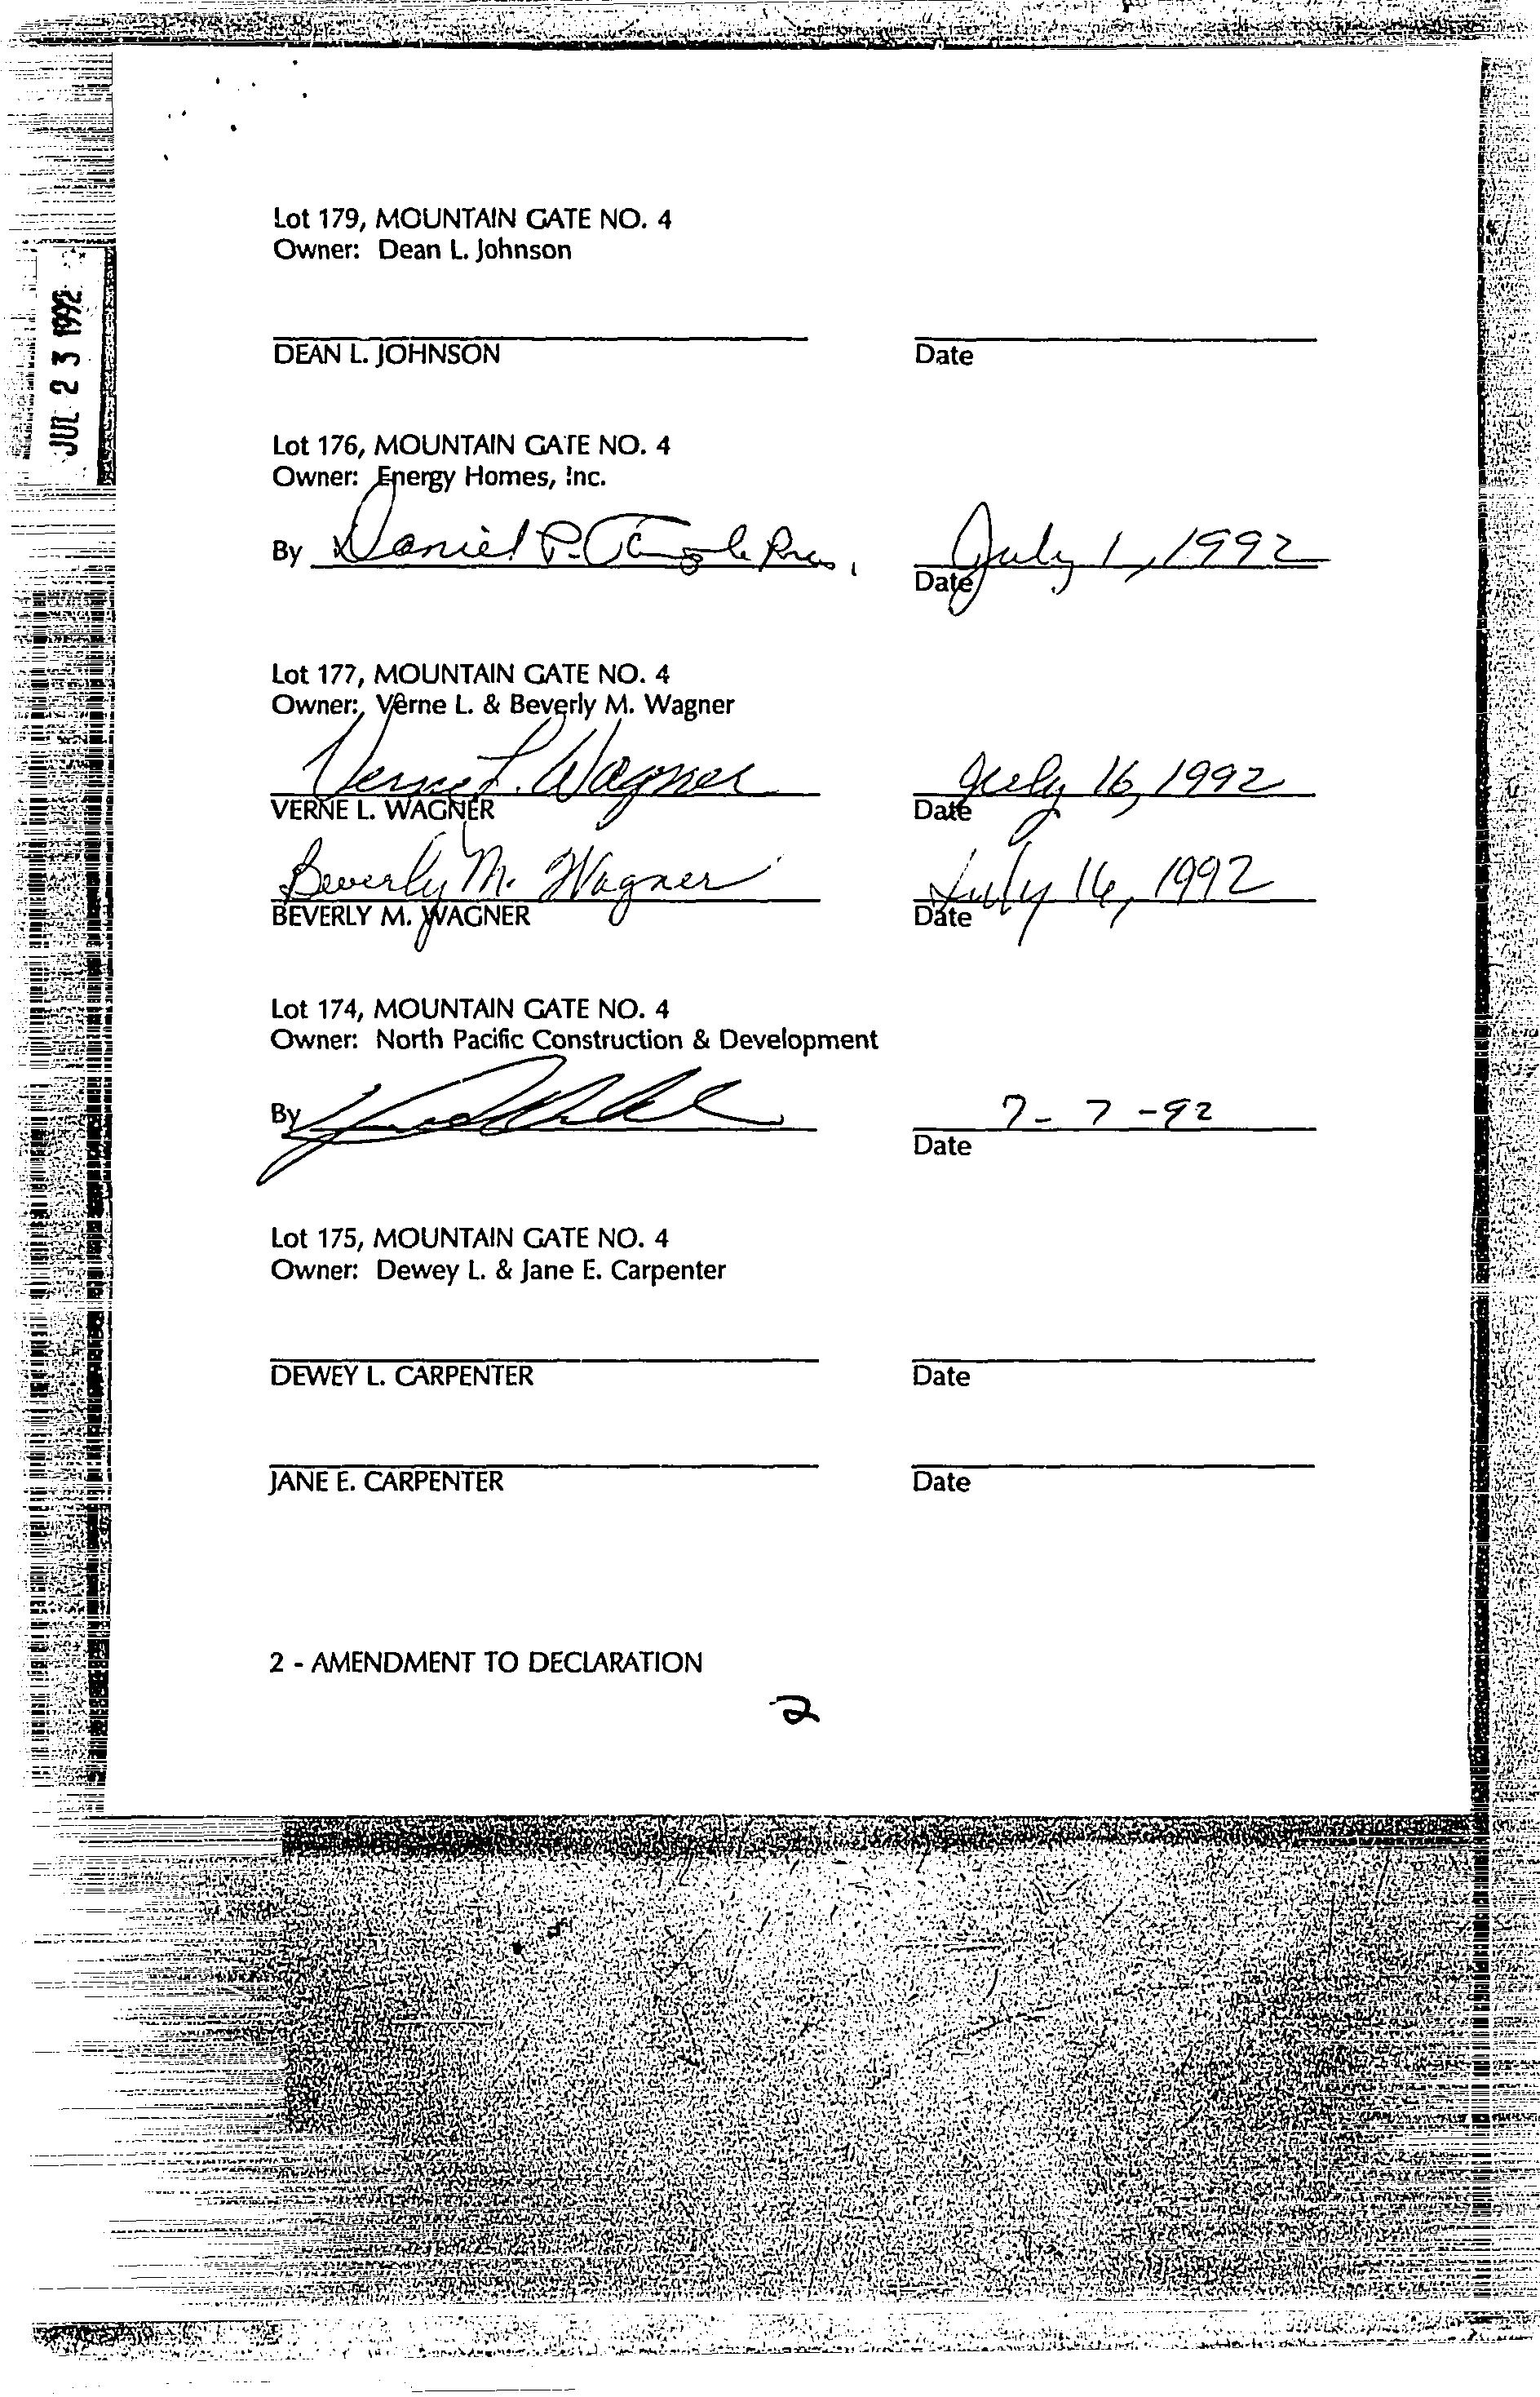 JUL 23 1992
Lot 179, MOUNTAIN GATE NO. 4
Owner: Dean L. Johnson
DEAN L. JOHNSON Date
Lot 176, MOUNTAIN GATE NO. 4
Owner: Energy Homes, Inc.
By Daniel P. Pres, July 1, 1992
Date
Lot 177, MOUNTAIN GATE NO. 4
Owner: Verne L. & Beverly M. Wagner
Verne L. Wagner July 16, 1992
VERNE L. WAGNER Date
Beverly M. Wagner July 16, 1992
BEVERLY M. WAGNER Date
Lot 174, MOUNTAIN GATE NO. 4
Owner: North Pacific Construction & Development
By 7-7-92
Date
Lot 175, MOUNTAIN GATE NO. 4
Owner: Dewey L. & Jane E. Carpenter
DEWEY L. CARPENTER Date
JANE E. CARPENTER Date
2 - AMENDMENT TO DECLARATION
2